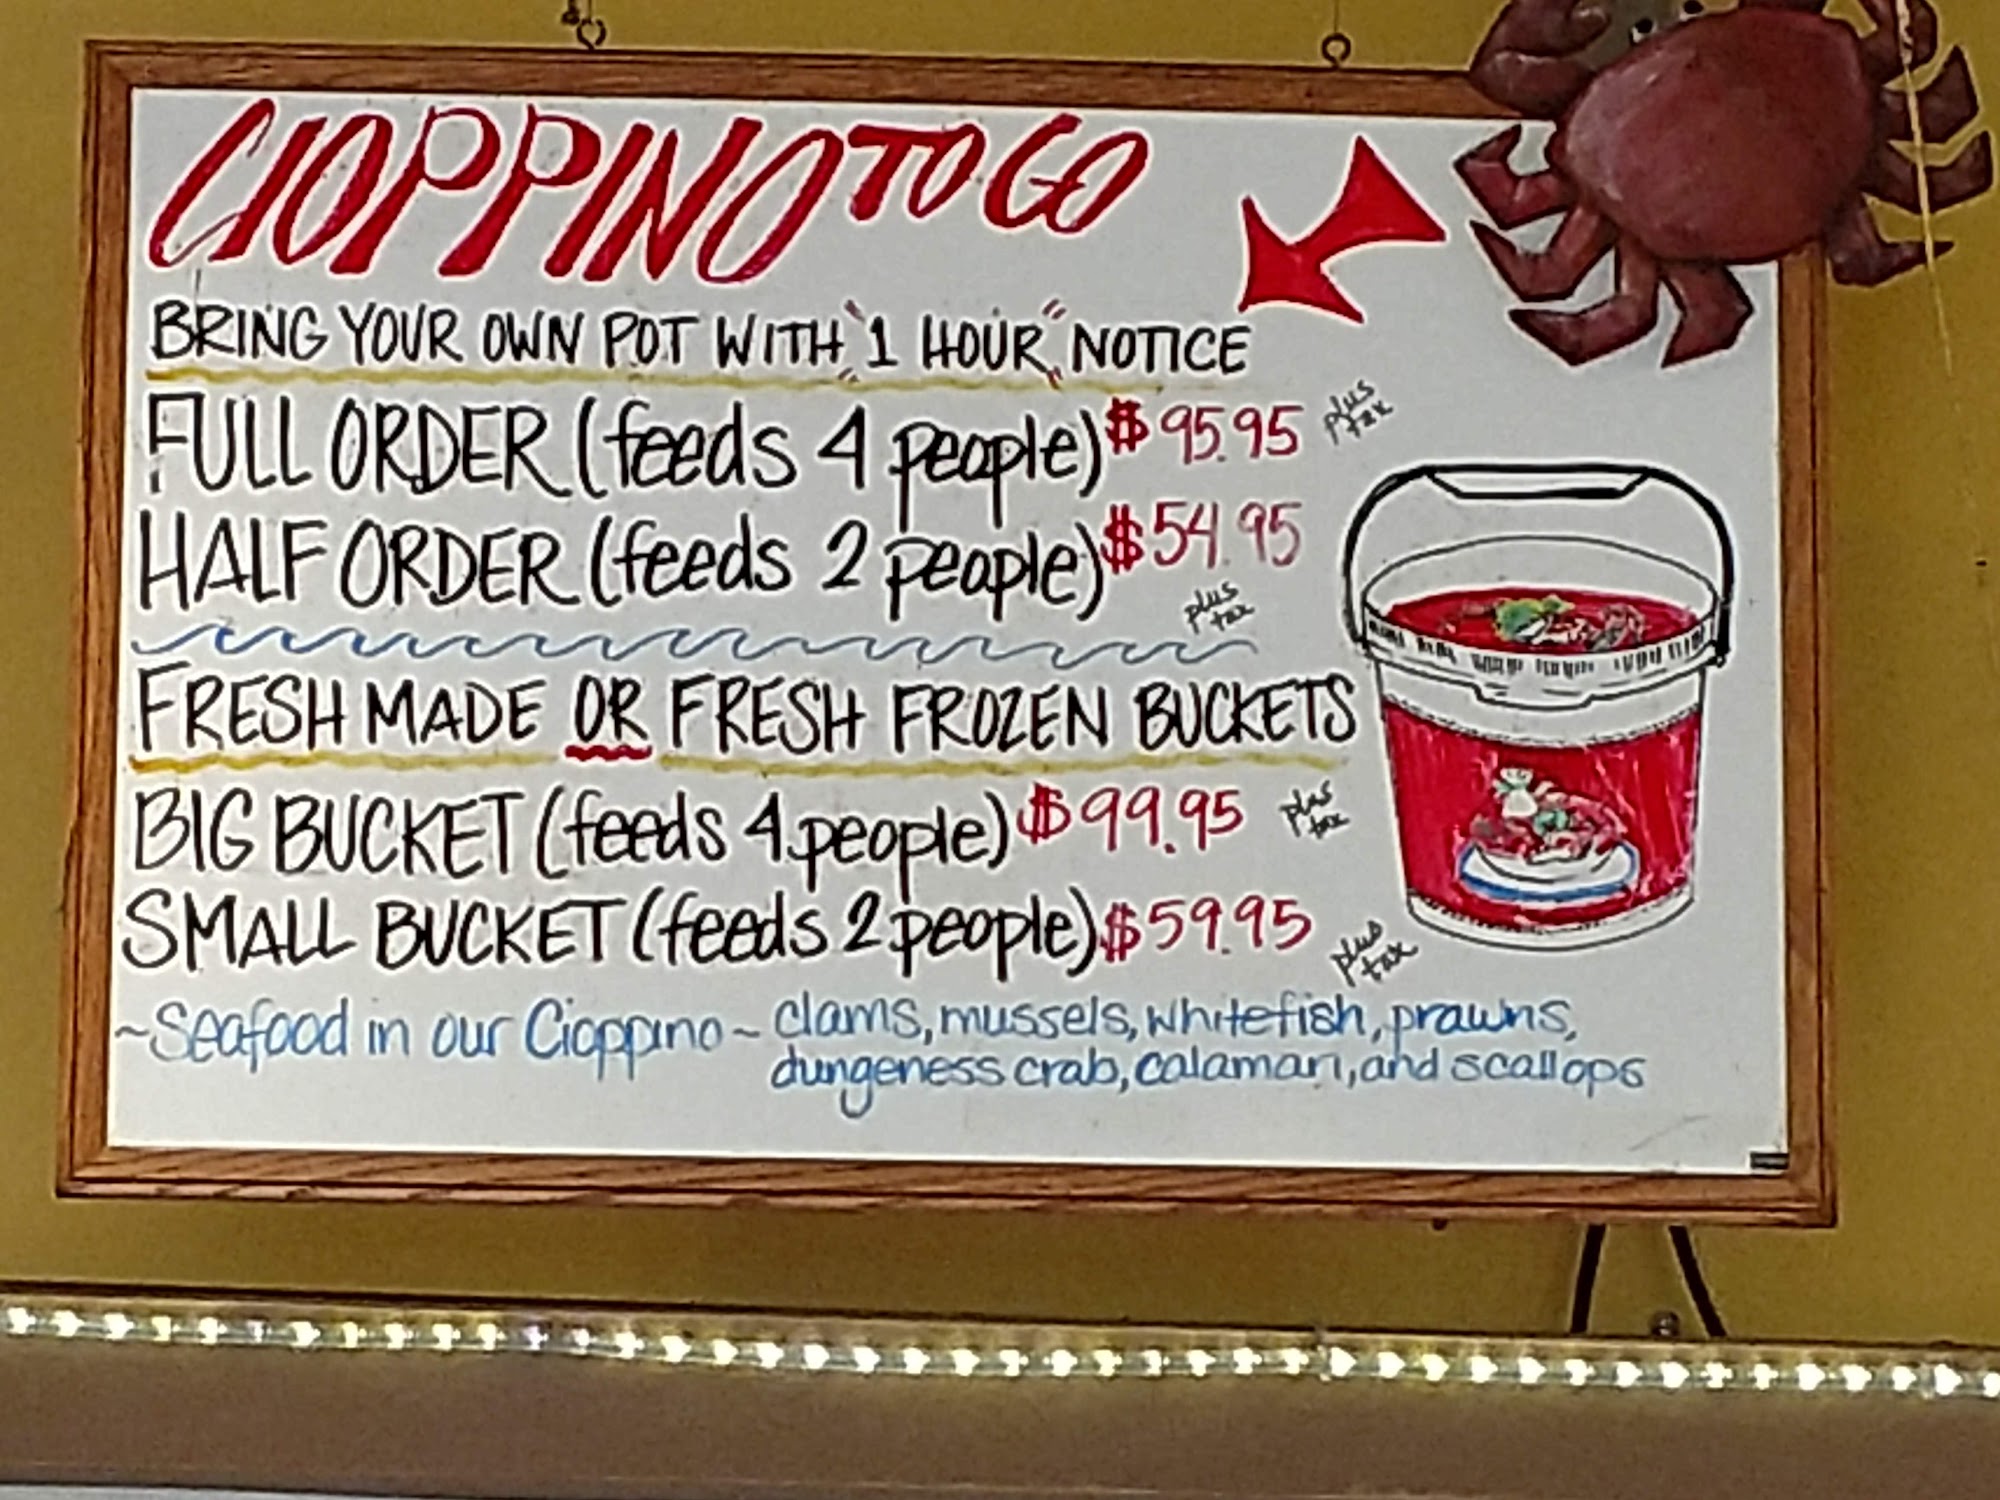 CIOPPINO TO GO
BRING YOUR OWN POT WITH "1 HOUR" NOTICE
FULL ORDER (feeds 4 people) $95.95 plus tax
HALF ORDER (feeds 2 people) $54.95
plus tax
FRESH MADE OR FRESH FROZEN BUCKETS
BIG BUCKET (feeds 4 people) $99.95 plus tax
SMALL BUCKET (feeds 2 people) $59.95 plus tax
~Seafood in our Cioppino~ clams, mussels, whitefish, prawns,
dungeness crab, calamari, and scallops